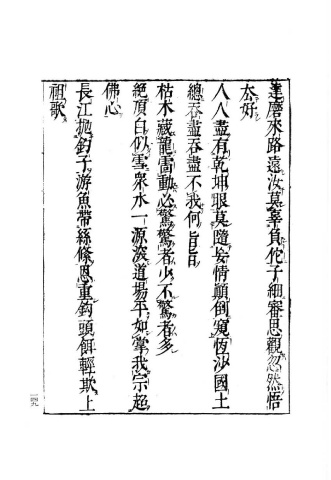 達磨來路遠汝莫辜負佗子細審思觀忽然悟
太好
人人盡有乾坤眼莫隨妄情顛倒窺恆沙國土
總吞盡吞盡不我何㫖㫖
枯木藏龍雷動必驚驚者少不驚者多
絕頂白似雪衆水一源深道場平如掌我宗超
佛心
長江拋鈎子游魚帶絲條恩重鈎頭餌輕欺上
祖歌
一四九